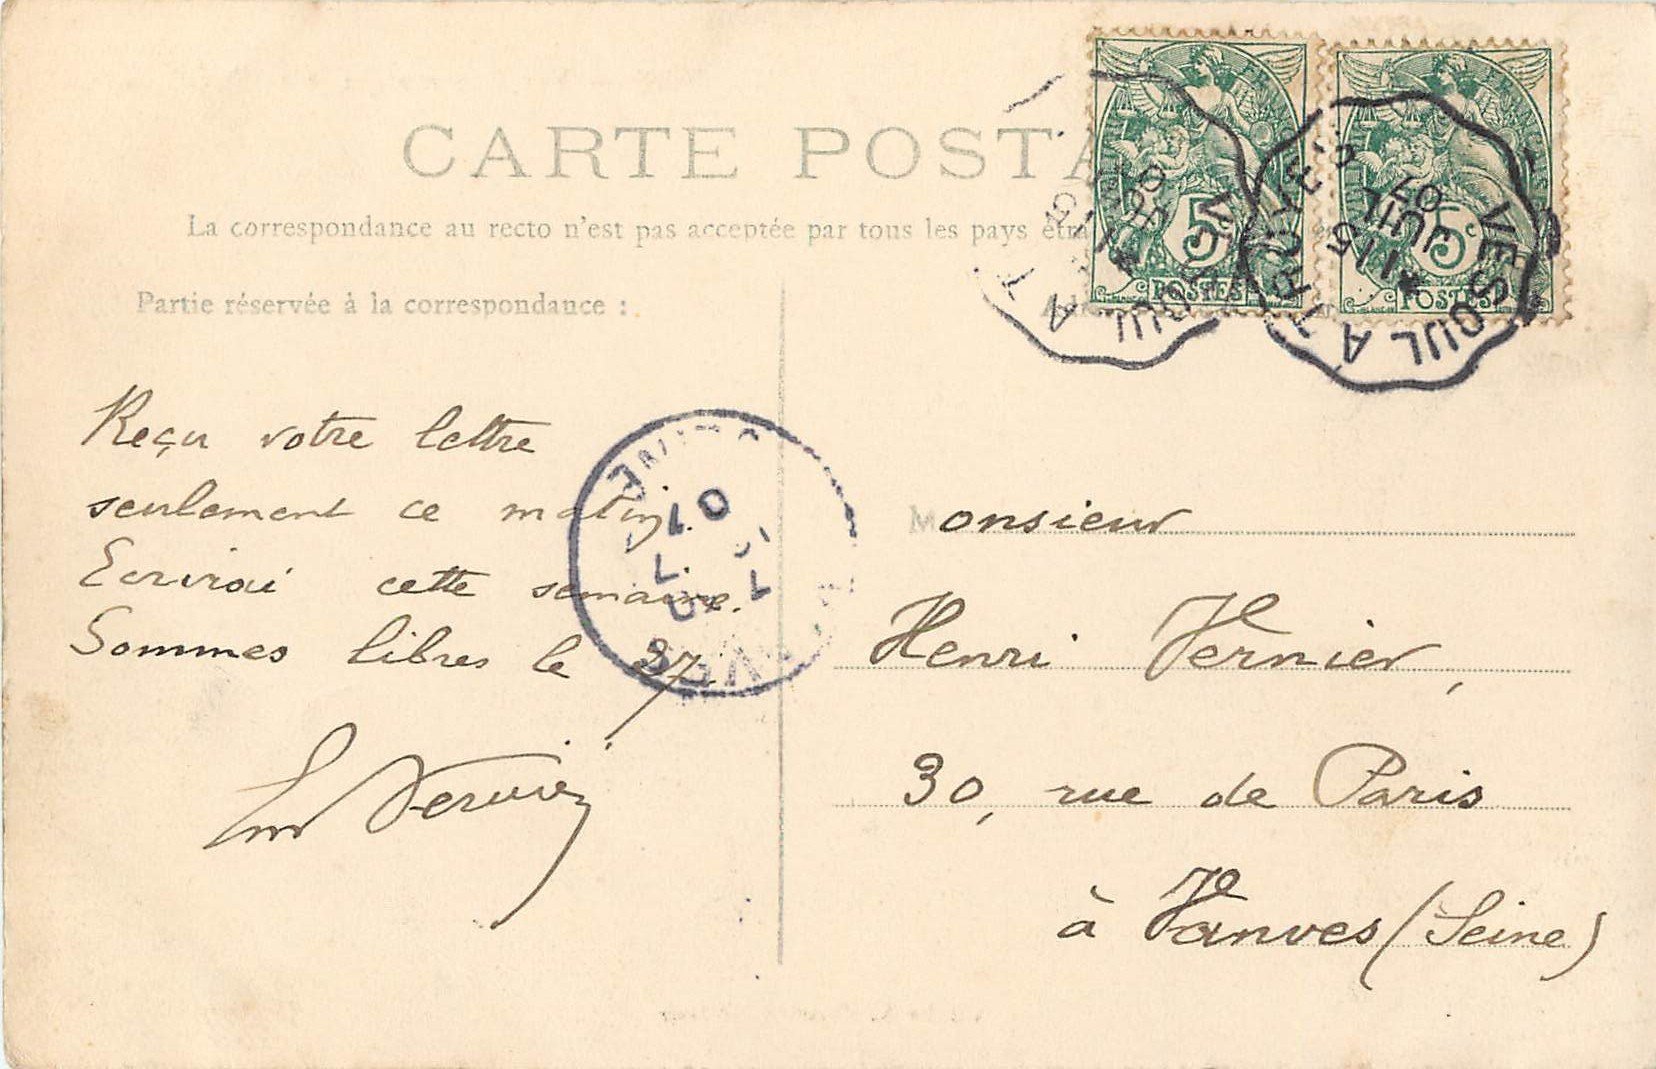 CARTE POSTA
La correspondance au recto n'est pas acceptée par tous les pays étra
Partie réservée à la correspondance :
5
POSTES
5c
POSTES
VESOUL A TROYES
15
JUIL
07
VESOUL A T
Reçu votre lettre
seulement ce matin.
Ecrirai cette semaine.
Sommes libres le 27.
Vernier
VANVES
SEINE
Monsieur
Henri Vernier,
30, rue de Paris
à Vanves (Seine)